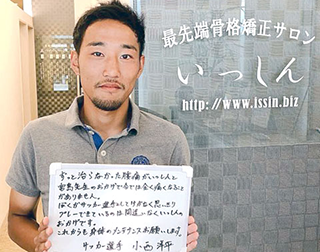 最先端骨格矯正サロン
いっしん
http://www.issin.biz
ずっと治らなかった腰痛がいっしんと
先生のおかげで今では全く痛くなることが
ありません。
ぼくがサッカー選手としてけがなく思いっきり
プレーできているのは間違いなくいっしんの
おかげです。
これからも身体のメンテナンスお願いします。
サッカー選手 小西